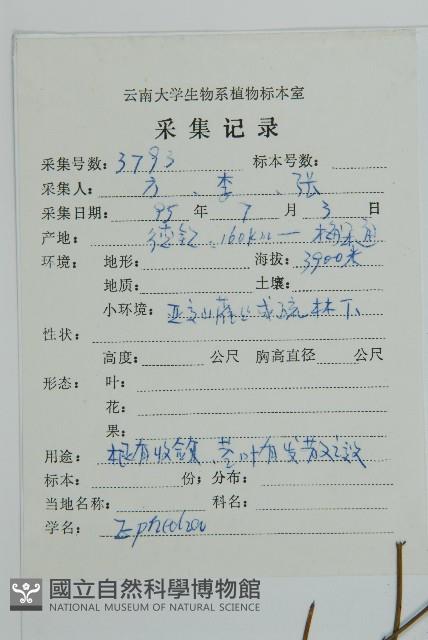 云南大学生物系植物标本室
采集记录
采集号数: 3793 标本号数:
采集人: 方、李、张
采集日期: 95 年 7 月 3 日
产地: 德钦、160km一
环境: 地形: 海拔: 3900米
地质: 土壤:
小环境: 林下
性状:
高度: 公尺 胸高直径 公尺
形态: 叶:
花:
果:
用途: 根有收敛、茎叶有发散之效
标本: 份; 分布:
当地名称: 科名:
学名:
國立自然科學博物館
NATIONAL MUSEUM OF NATURAL SCIENCE